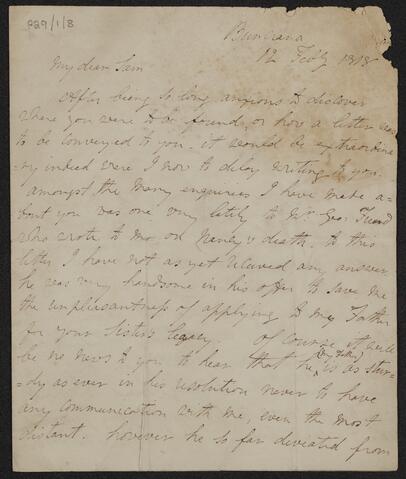 P29/1/8
Buncrana
12 Feby 1818
My dear Sam
After being so long anxious to discover
where you were to be found, or how a letter was
to be conveyed to you. it would be extraordina-
ry indeed were I now to delay writing to you.
amongst the many enquiries I have made a-
bout you was one very lately to Mr Geo:
who wrote to me on Nancy's death. to this
letter I have not as yet received any answer
he was very handsome in his offer to save me
the unpleasantness of applying to my Father
for your Sisters legacy. Of course it will
be no news to you to hear that he (my Father) is as stur-
dy as ever in his resolution never to have
any communication with me, even the most
distant. however he so far deviated from